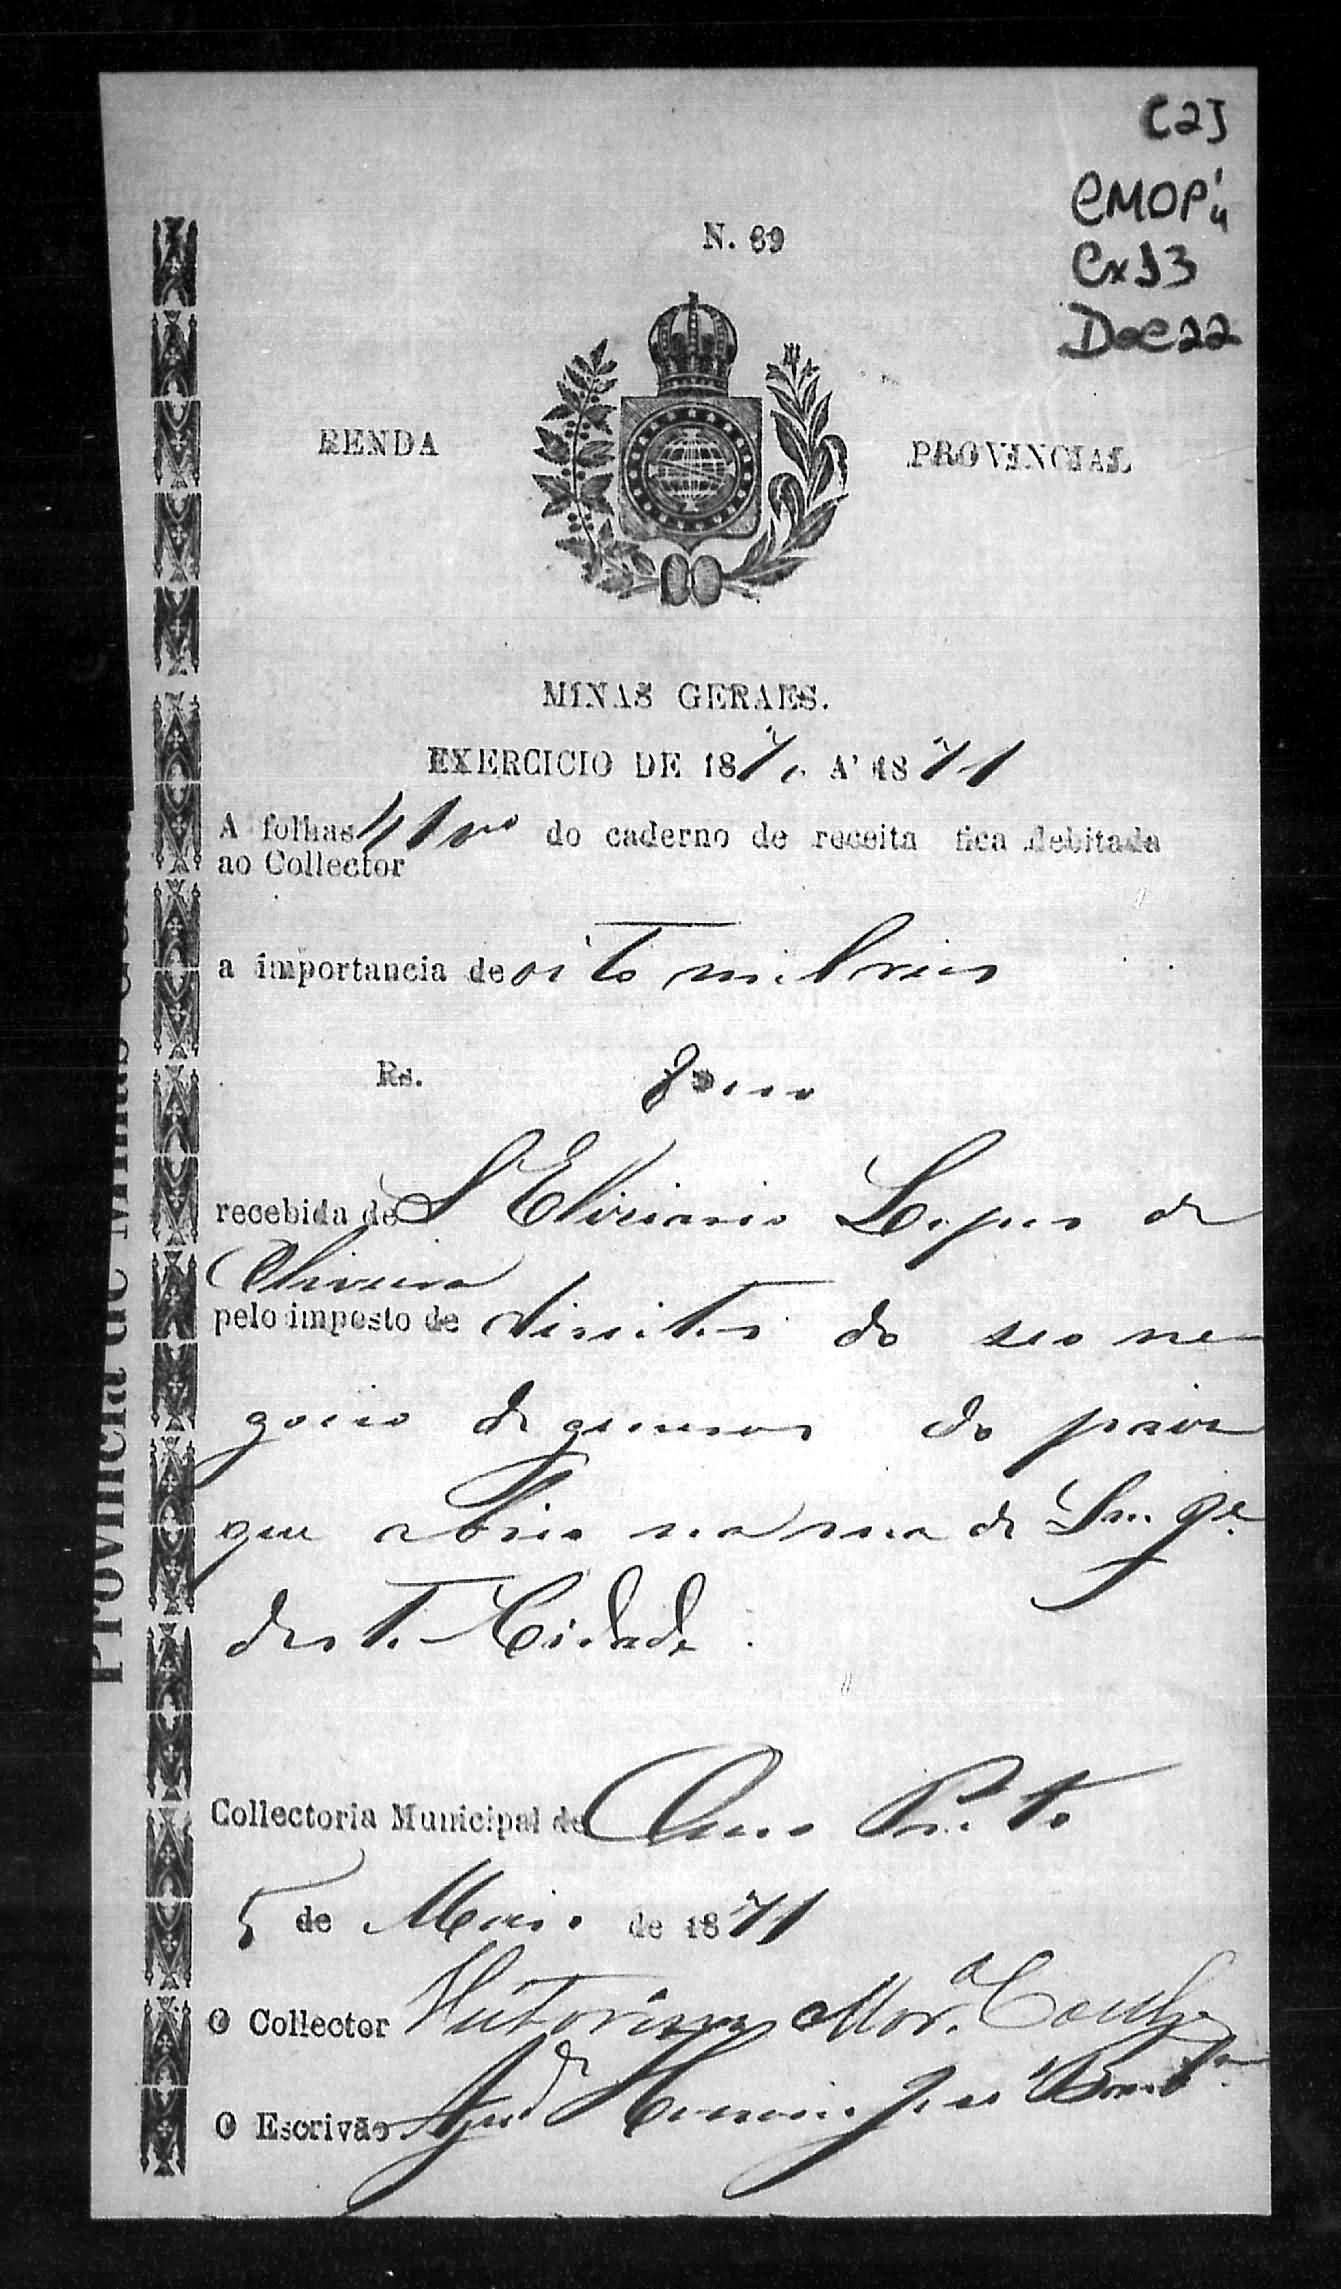 C2J
CMOP
Cx13
Doc22
N. 69
RENDA
PROVINCIAL
MINAS GERAES.
EXERCICIO DE 1870 A' 1871
A folhas 41 vo do caderno de receita fica debitada
ao Collector
a importancia de oito mil reis
Rs. 8000
recebida de Elisiario Lopes de
Oliveira
pelo imposto de direitos do seo ne-
gocio de generos do paiz
que abrio na rua de
desta Cidade.
Collectoria Municipal de Ouro Preto
5 de Maio de 1871
O Collector Victorino Mor.a
O Escrivão José
Provincia de Minas Geraes